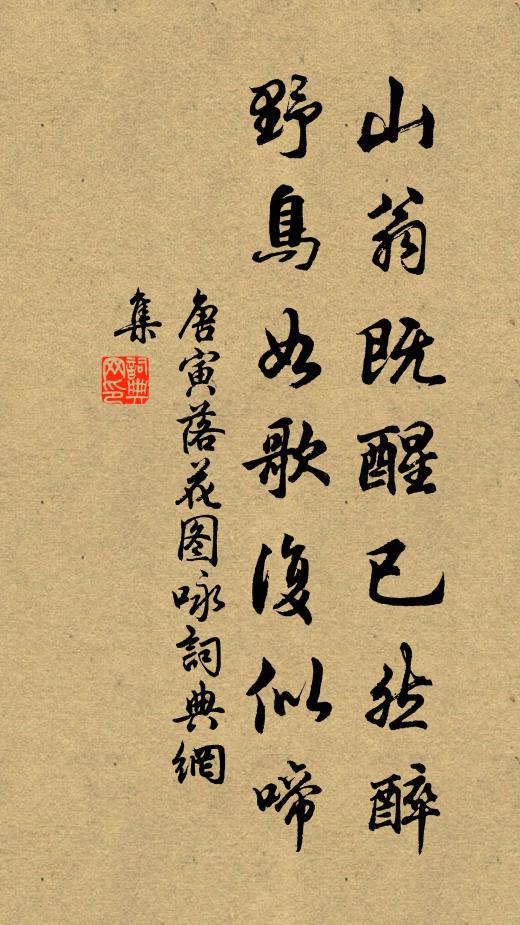 山翁既醒已然醉
野鳥如歌復似啼
唐寅落花图咏詞典網
集
詞典网印